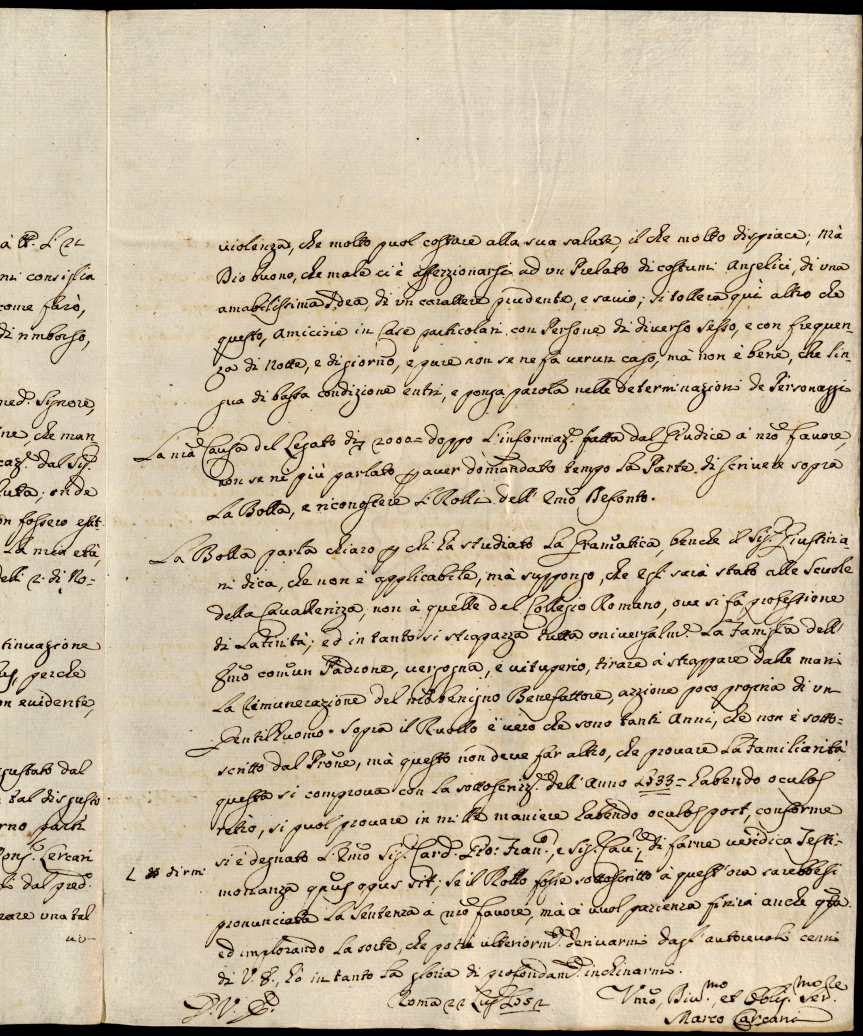 à
ni consiglia
come farò,
di rimborso,
ned.° Signore,
ne, che man-
caz.e dal Sig.
luta; onde
on fossero est
La mia età,
dell' 2. di No-
tinuazione
perche
on evidente,
gustato dal
tal disgusto
rno parti
Mons.r Cercari
dal pred.°
rare una tal
vi-
violenza, che molto puol costare alla sua salute, il che molto dispiace; mà
Dio buono, che male ci è afferzionarsi ad un Prelato di costumi Angelici, di una
amabilissima Idea, di un carattere prudente, e savio; si tollera quì altro che
questo, Amicizie in Case particolari con Persone di diverso sesso, e con frequen-
za di Notte, e di giorno, e pure non se ne fà verun caso, mà non è bene, che lin-
gua di bassa condizione entri, e ponga parola nelle determinazioni de Personaggi
La mia Causa del Legato di 2000= doppo l'informaz.e fatta dal Giudice à mio favore,
non se n'è più parlato p aver domandato tempo la Parte di scrivere sopra
La Bolla, e riconoscere li Rolli dell' Emo Defonto.
La Bolla parla chiaro p chi hà studiato la Gramatica, benche il Sig.r Giustinia-
ni dica, che non è applicabile, mà suppongo, che Egli sarà stato alle Scuole
della Cavallerizza, non à quelle del Collegio Romano, ove si fà professione
di Latinità; ed in tanto si strapazza tutta universalm.te La Famiglia dell'
Emo comun Padrone, vergogna, e vituperio, tirare à strappare dalle mani
La rimunerazione del nro benigno Benefattore, azzione poco propria di un
Gentilhuomo. Sopra il Ruollo è vero che sono tanti Anni, che non è sotto-
scritto dal Prone, mà questo non deve far altro, che provare La familiarità
questa si comprova con la sottoscriz.e dell' Anno 1733= habendo oculos
retro, si puol provare in mille maniere habendo oculos post, conforme
si è degnato l'Emo Sig.r Card. Gio: Fran.co, e Sig.r Cav.r di farne veridica Testi-
L dirmi
monianza quus opus sit; se il Rollo fosse sottoscritto à quest' ora sarebbesi
pronunciata La Sentenza à mio favore, mà ci vuol pazienza finirà anche qta
ed implorando la sorte, che potrà ulteriorm.te derivarmi dagl' autorevoli cenni
di V. E., hò in tanto la gloria di profondam.te inchinarmi.
D. V. E.
Roma 22 Lug.° 1752
Umo, Div.mo, et Oblig.mo Ser.re
Marco Carcani